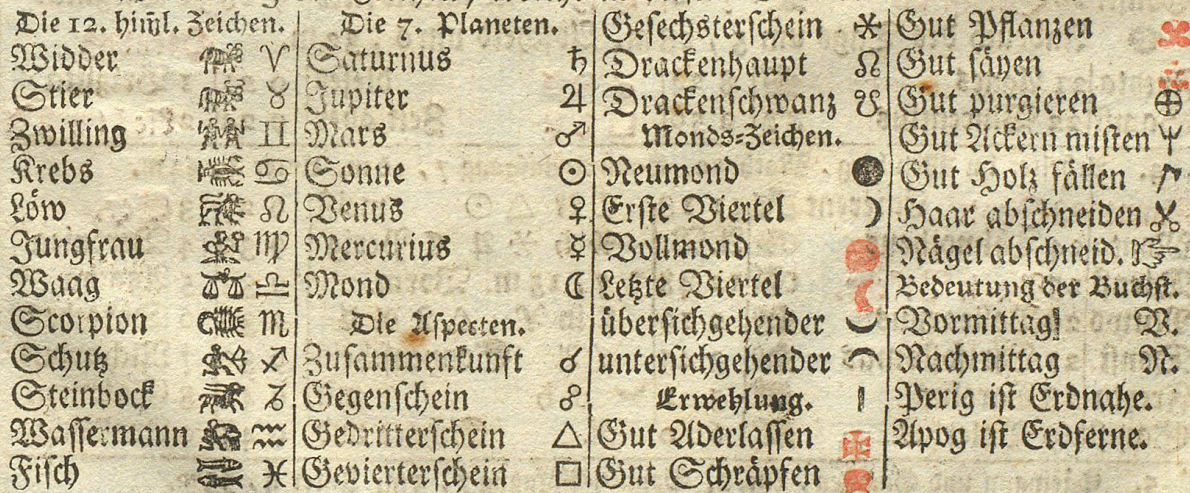 Die 12. himl. Zeichen.
Widder ♈
Stier ♉
Zwilling ♊
Krebs ♋
Löw ♌
Jungfrau ♍
Waag ♎
Scorpion ♏
Schutz ♐
Steinbock ♑
Wassermann ♒
Fisch ♓
Die 7. Planeten.
Saturnus ♄
Jupiter ♃
Mars ♂
Sonne ☉
Venus ♀
Mercurius ☿
Mond ☾
Die Aspecten.
Zusammenkunft ☌
Gegenschein ☍
Gedritterschein △
Gevierterschein □
Gesechsterschein ⚹
Drackenhaupt ☊
Drackenschwanz ☋
Monds-Zeichen.
Neumond ●
Erste Viertel ☽
Vollmond
Letzte Viertel ☾
übersichgehender
untersichgehender
Erwehlung.
Gut Aderlassen
Gut Schräpfen
Gut Pflanzen
Gut säyen
Gut purgieren ⊕
Gut Ackern misten
Gut Holz fällen
Haar abschneiden
Nägel abschneid.
Bedeutung der Buchst.
Vormittag V.
Nachmittag N.
Perig ist Erdnahe.
Apog ist Erdferne.